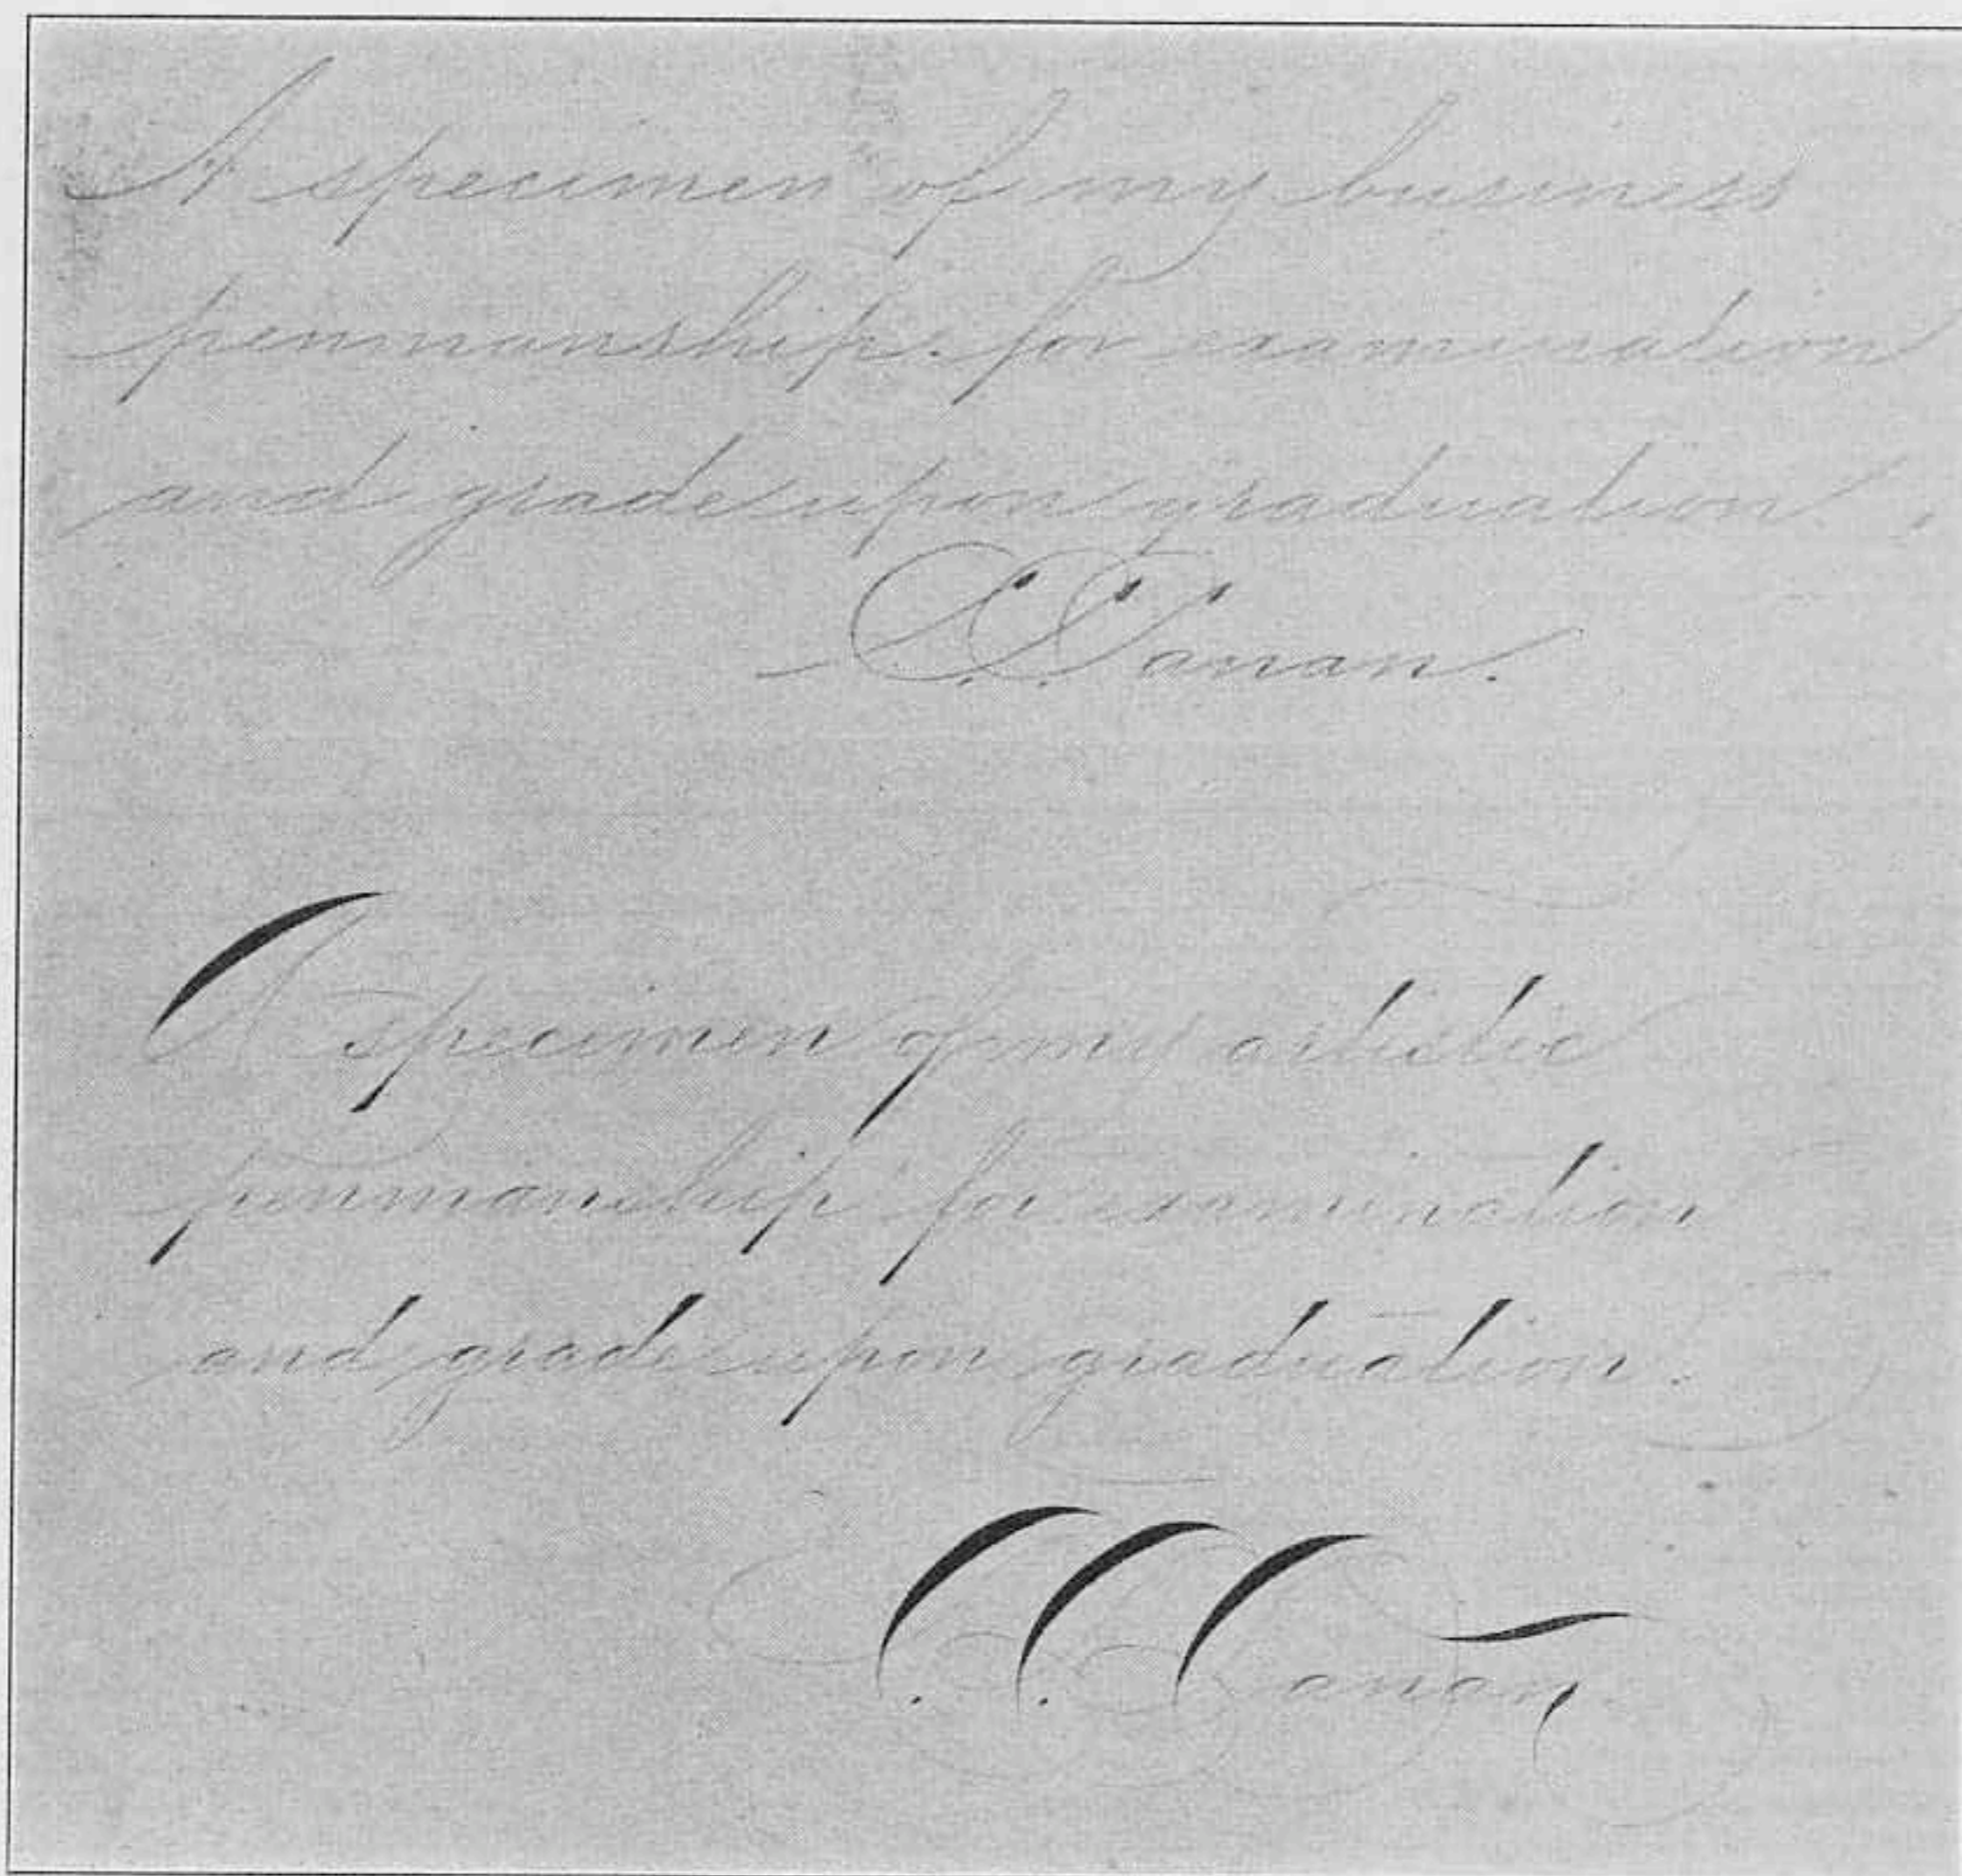 A specimen of my business
penmanship for examination
and grade upon graduation.
C. C. Canan.
A specimen of my artistic
penmanship for examination
and grade upon graduation.
C. C. Canan